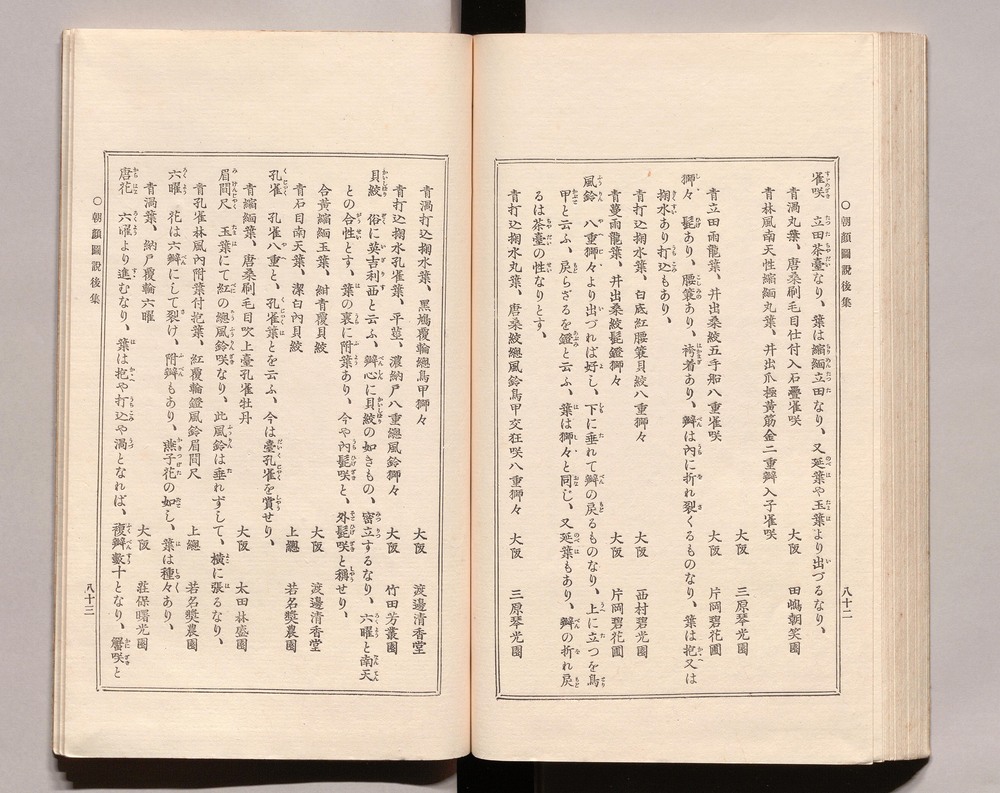 ○朝顔圖説後集
八十二
雀咲　立田茶臺なり、葉は縮緬立田なり、又延葉や玉葉より出づるなり、
青渦丸葉、唐桑刷毛目仕付入石疊雀咲　大阪　田嶋朝笑園
青林風南天性縮緬丸葉、井出爪極黄筋金二重瓣入子雀咲
大阪　三原琴光園
青立田雨龍葉、井出桑絞五手船八重雀咲　大阪　片岡碧花園
獅々　髭あり、腰簔あり、袴着あり、瓣は內に折れ裂くるものなり、葉は抱又は
掬水あり打込もあり、
青打込掬水葉、白底紅腰簔貝絞八重獅々　大阪　西村碧光園
青蔓雨龍葉、井出桑絞髭鐙獅々　大阪　片岡碧花園
風鈴　八重獅々より出づれば好し、下に垂れて瓣の戻るものなり、上に立つを鳥
甲と云ふ、戻らざるを鐙と云ふ、葉は獅々と同じ、又延葉もあり、瓣の折れ戻
るは茶臺の性なりとす、
青打込掬水丸葉、唐桑絞總風鈴鳥甲交狂咲八重獅々　大阪　三原琴光園
青渦打込掬水葉、黑鳩覆輪總鳥甲獅々　大阪　渡邊清香堂
青打込掬水孔雀葉、平莖、濃納戸八重總風鈴獅々　大阪　竹田芳叢園
貝絞　俗に英吉利西と云ふ、瓣心に貝絞の如きもの、密立するなり、六曜と南天
との合性とす、葉の裏に附葉あり、今や內髭咲と、外髭咲と稱せり、
合黄縮緬玉葉、紺青覆貝絞　大阪　渡邊清香堂
青石目南天葉、潔白內貝絞　上總　若名奬農園
孔雀　孔雀八重と、孔雀葉とを云ふ、今は臺孔雀を賞せり、
青縮緬葉、唐桑刷毛目吹上臺孔雀牡丹　大阪　太田林盛園
眉間尺　玉葉にて紅の總風鈴咲なり、此風鈴は垂れずして、橫に張るなり、
青孔雀林風內附葉付抱葉、紅覆輪鐙風鈴眉間尺　上總　若名奬農園
六曜　花は六瓣にして裂け、附瓣もあり、燕子花の如し、葉は種々あり、
青渦葉、納戸覆輪六曜　大阪　莊保曙光園
唐花　六曜より進むなり、葉は抱や打込や渦となれば、複瓣數十となり、蟹咲と
○朝顔圖説後集
八十三